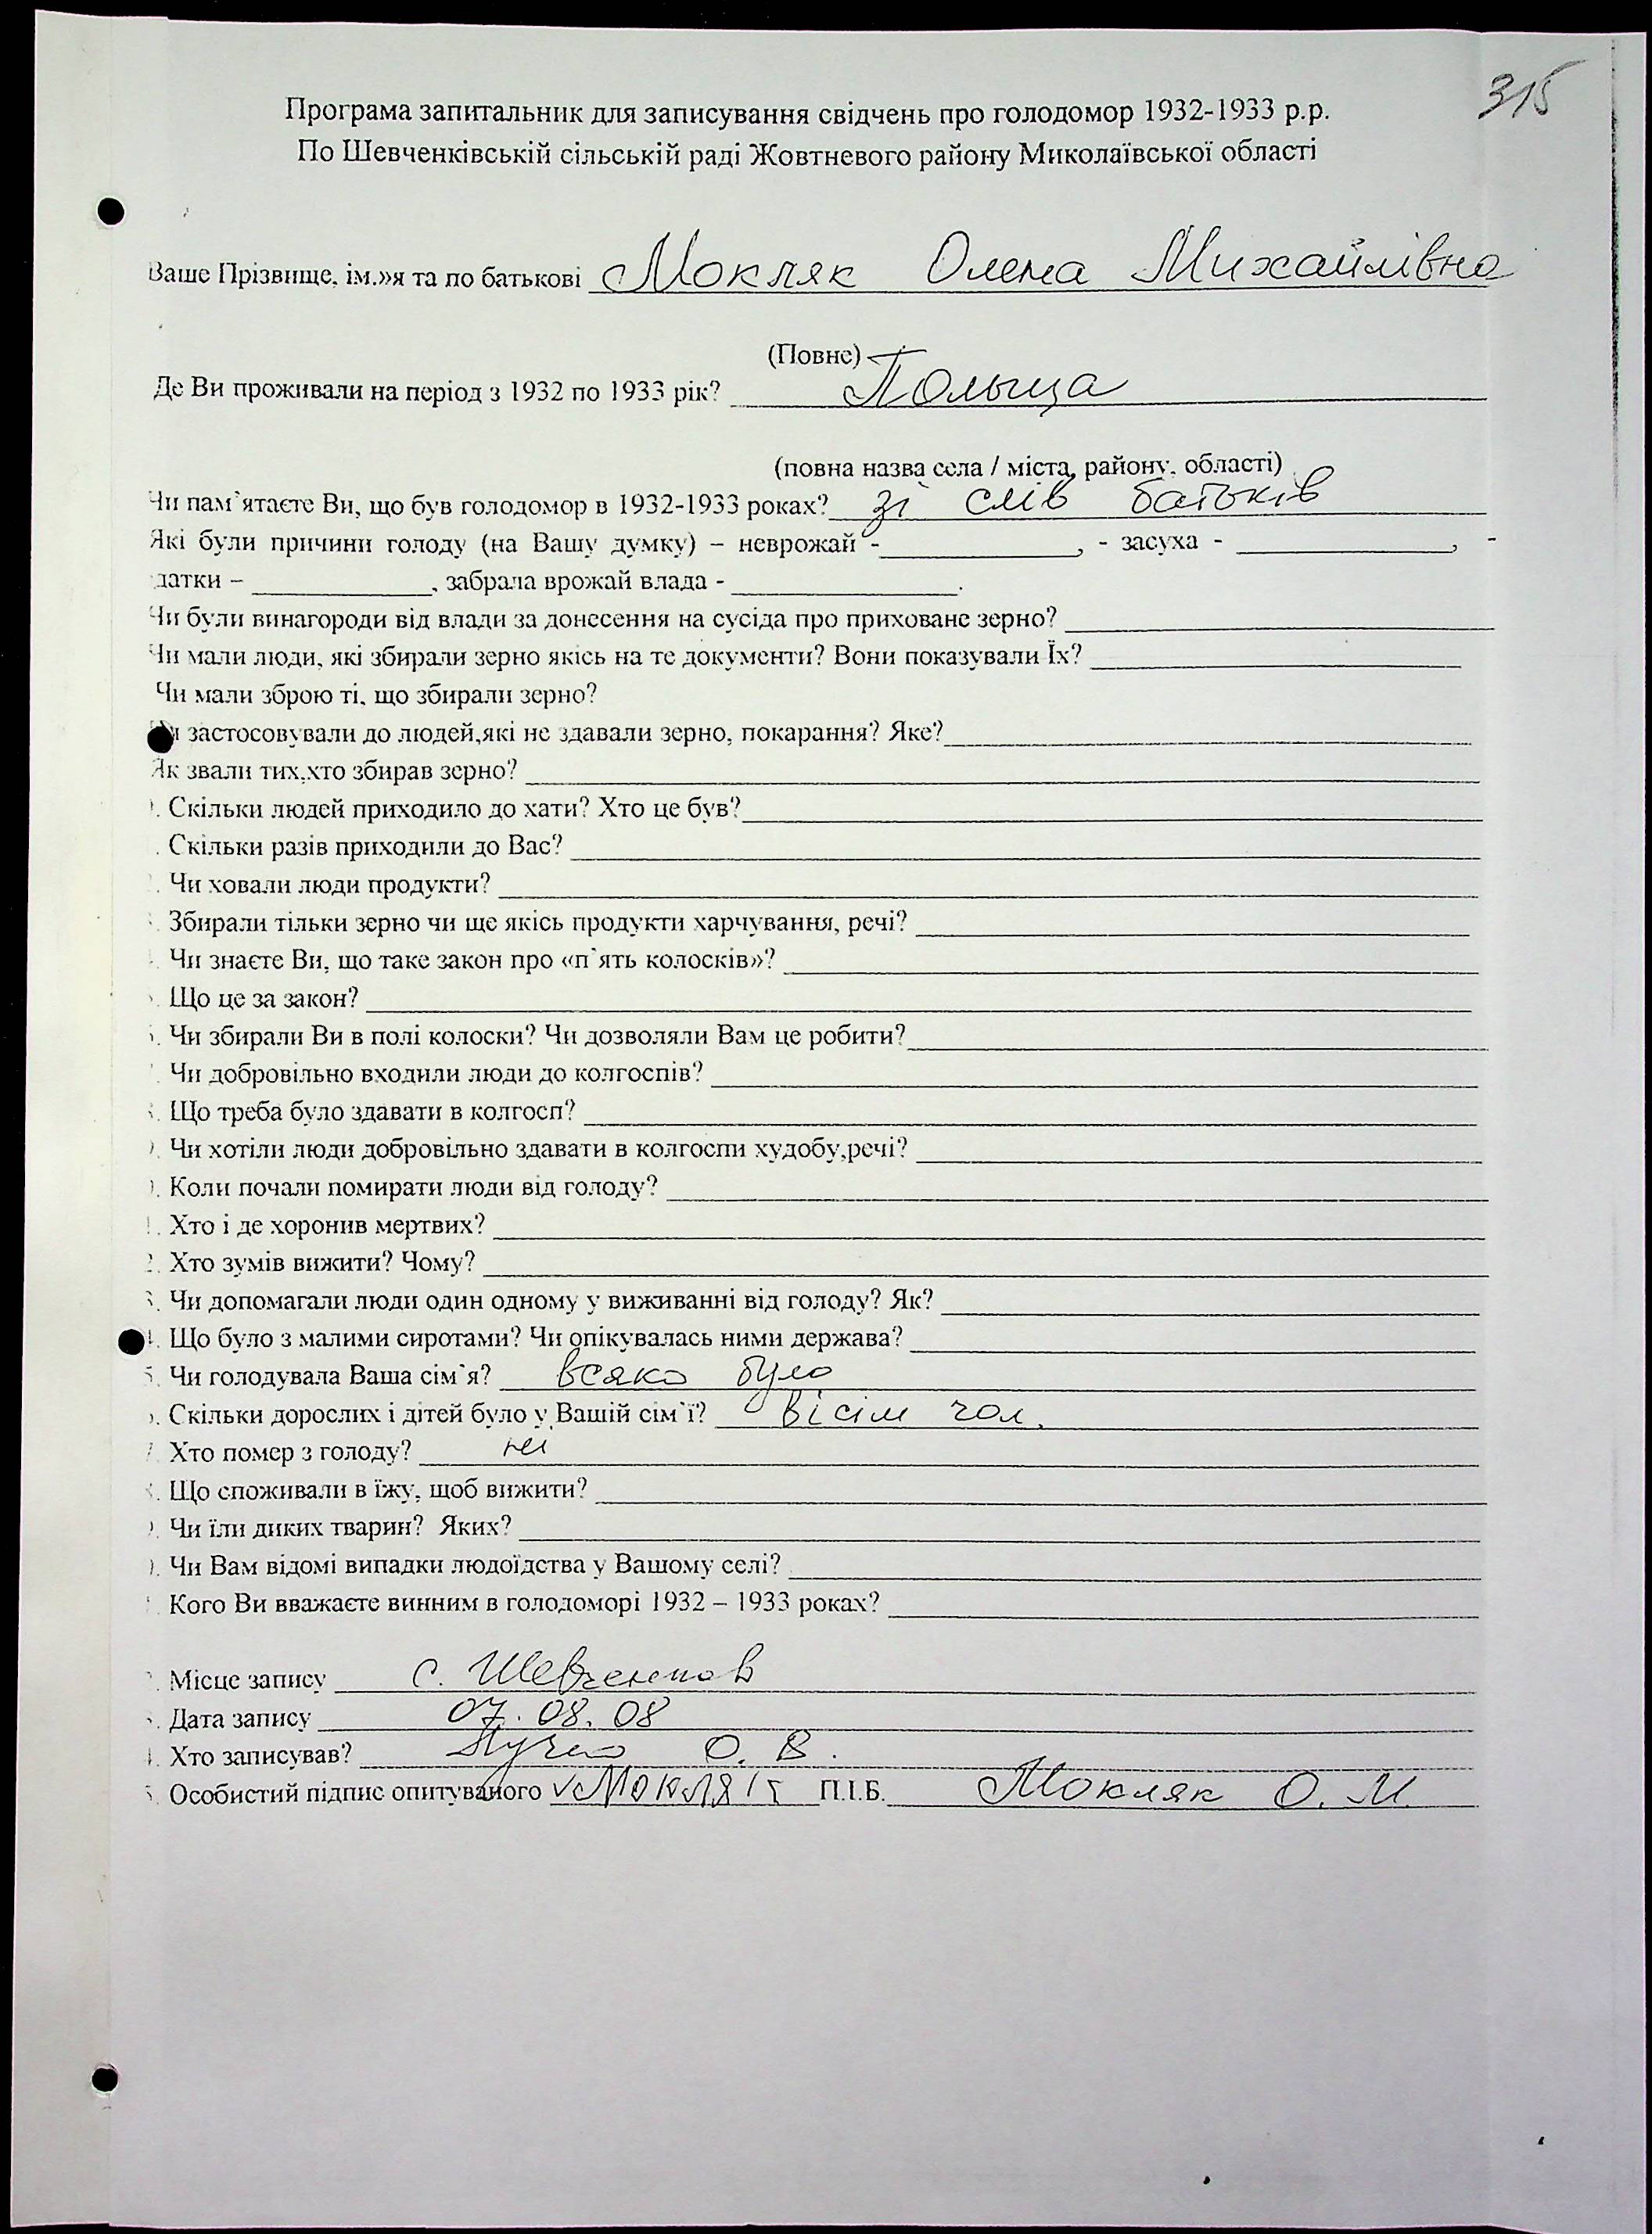 315
Програма запитальник для записування свідчень про голодомор 1932-1933 р.р.
По Шевченківській сільській раді Жовтневого району Миколаївської області
Ваше Прізвище, ім.»я та по батькові Мокляк Олена Михайлівна
(Повне)
Де Ви проживали на період з 1932 по 1933 рік? Польща
(повна назва села / міста, району, області)
Чи пам`ятаєте Ви, що був голодомор в 1932-1933 роках? зі слів батьків
Які були причини голоду (на Вашу думку) – неврожай - ____, - засуха - ____, -
датки – ____, забрала врожай влада - ____.
Чи були винагороди від влади за донесення на сусіда про приховане зерно?
Чи мали люди, які збирали зерно якісь на те документи? Вони показували Їх?
Чи мали зброю ті, що збирали зерно?
и застосовували до людей,які не здавали зерно, покарання? Яке?
Як звали тих,хто збирав зерно?
. Скільки людей приходило до хати? Хто це був?
. Скільки разів приходили до Вас?
. Чи ховали люди продукти?
. Збирали тільки зерно чи ще якісь продукти харчування, речі?
. Чи знаєте Ви, що таке закон про «п`ять колосків»?
. Що це за закон?
. Чи збирали Ви в полі колоски? Чи дозволяли Вам це робити?
. Чи добровільно входили люди до колгоспів?
. Що треба було здавати в колгосп?
. Чи хотіли люди добровільно здавати в колгоспи худобу,речі?
. Коли почали помирати люди від голоду?
. Хто і де хоронив мертвих?
. Хто зумів вижити? Чому?
. Чи допомагали люди один одному у виживанні від голоду? Як?
. Що було з малими сиротами? Чи опікувалась ними держава?
. Чи голодувала Ваша сім`я? всяко було
. Скільки дорослих і дітей було у Вашій сім`ї? вісім чол.
. Хто помер з голоду? ні
. Що споживали в їжу, щоб вижити?
. Чи їли диких тварин? Яких?
. Чи Вам відомі випадки людоїдства у Вашому селі?
. Кого Ви вважаєте винним в голодоморі 1932 – 1933 роках?
. Місце запису с. Шевченково
. Дата запису 07.08.08
. Хто записував? О. В.
. Особистий підпис опитуваного Мокляк П.І.Б. Мокляк О. М.